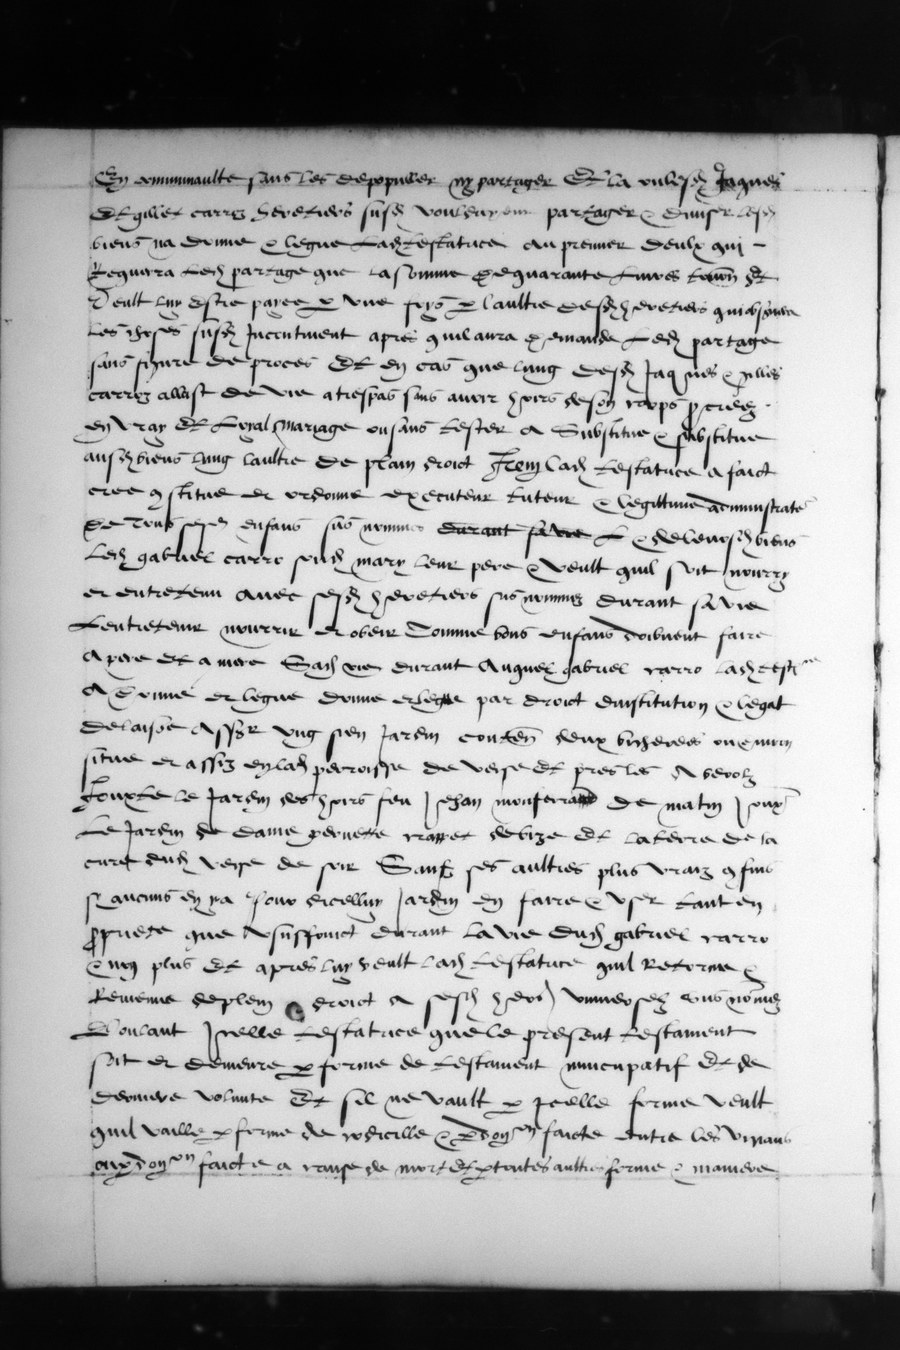 En communaulte sans les depopuler ny partager Et la ou lesd Jaques
Et gillet carroz heretiers susd vouldroient partager & diviser lesd
biens na donne & legue lad testatrice au premier deulx qui
Requerra led partage que la somme de quarante livres tourn Et
Veult luy estre payee p une foys p laultre desd heretiers qui observera
les choses susd Incontinent apres quil aura demande led partage
sans figure de proces Et en cas que lung desd Jaques & gilles
carroz allast de vie a trespas sans avoir hoirs de son corps pcreez
en vray Et loyal mariage ou sans tester a Substitue & substitue
ausd biens lung laultre de plain droict Item lad testatrice a faict
cree 9stitue et ordonne executeur tuteur & legittime administrate
de tous sesd enfans sus nommes durant sa vie & de leursd biens
led gabriel carro sond mary leur pere & veult quil soit nourry
et entretenu avec sesd heretiers sus nommez durant sa vie
Lentretenir nourrir et obeir Comme bons enfans doibvent faire
A pere Et a mere Sad vie durant Auquel gabriel carro lad test
A Donne et legue donne et legue par droict dinstitution & legat
delaisse Assr ung sien Jardin conten deux bicherees ou environ
situe et assiz en lad parroisse de veise Et pres les
Jouxte le Jardin des hoirs feu Jehan monferrand de matin Jouxt
Le Jardin de dame pernette de bize Et la terre de la
cure dud veise de soir Sauf ses aultres plus vraiz 9fins
sy aucuns en y a Pour dicelluy Jardin en faire & user tant en
ppriete que usuffruict durant la vie dud gabriel carro
& non plus Et apres luy veult lad testatrice quil Retorne &
Revienne de plein droict a sesd hers universelz sus nomez
Voulant Icelle testatrice que le present testament
soit et demeure p forme de testament nuncupatif Et de
derniere volunte Et sil ne vault p Icelle forme veult
quil vaille p forme de codicille & donon faicte entre les vivans
ou donon faicte a cause de mort Et p toutes aultres forme & maniere